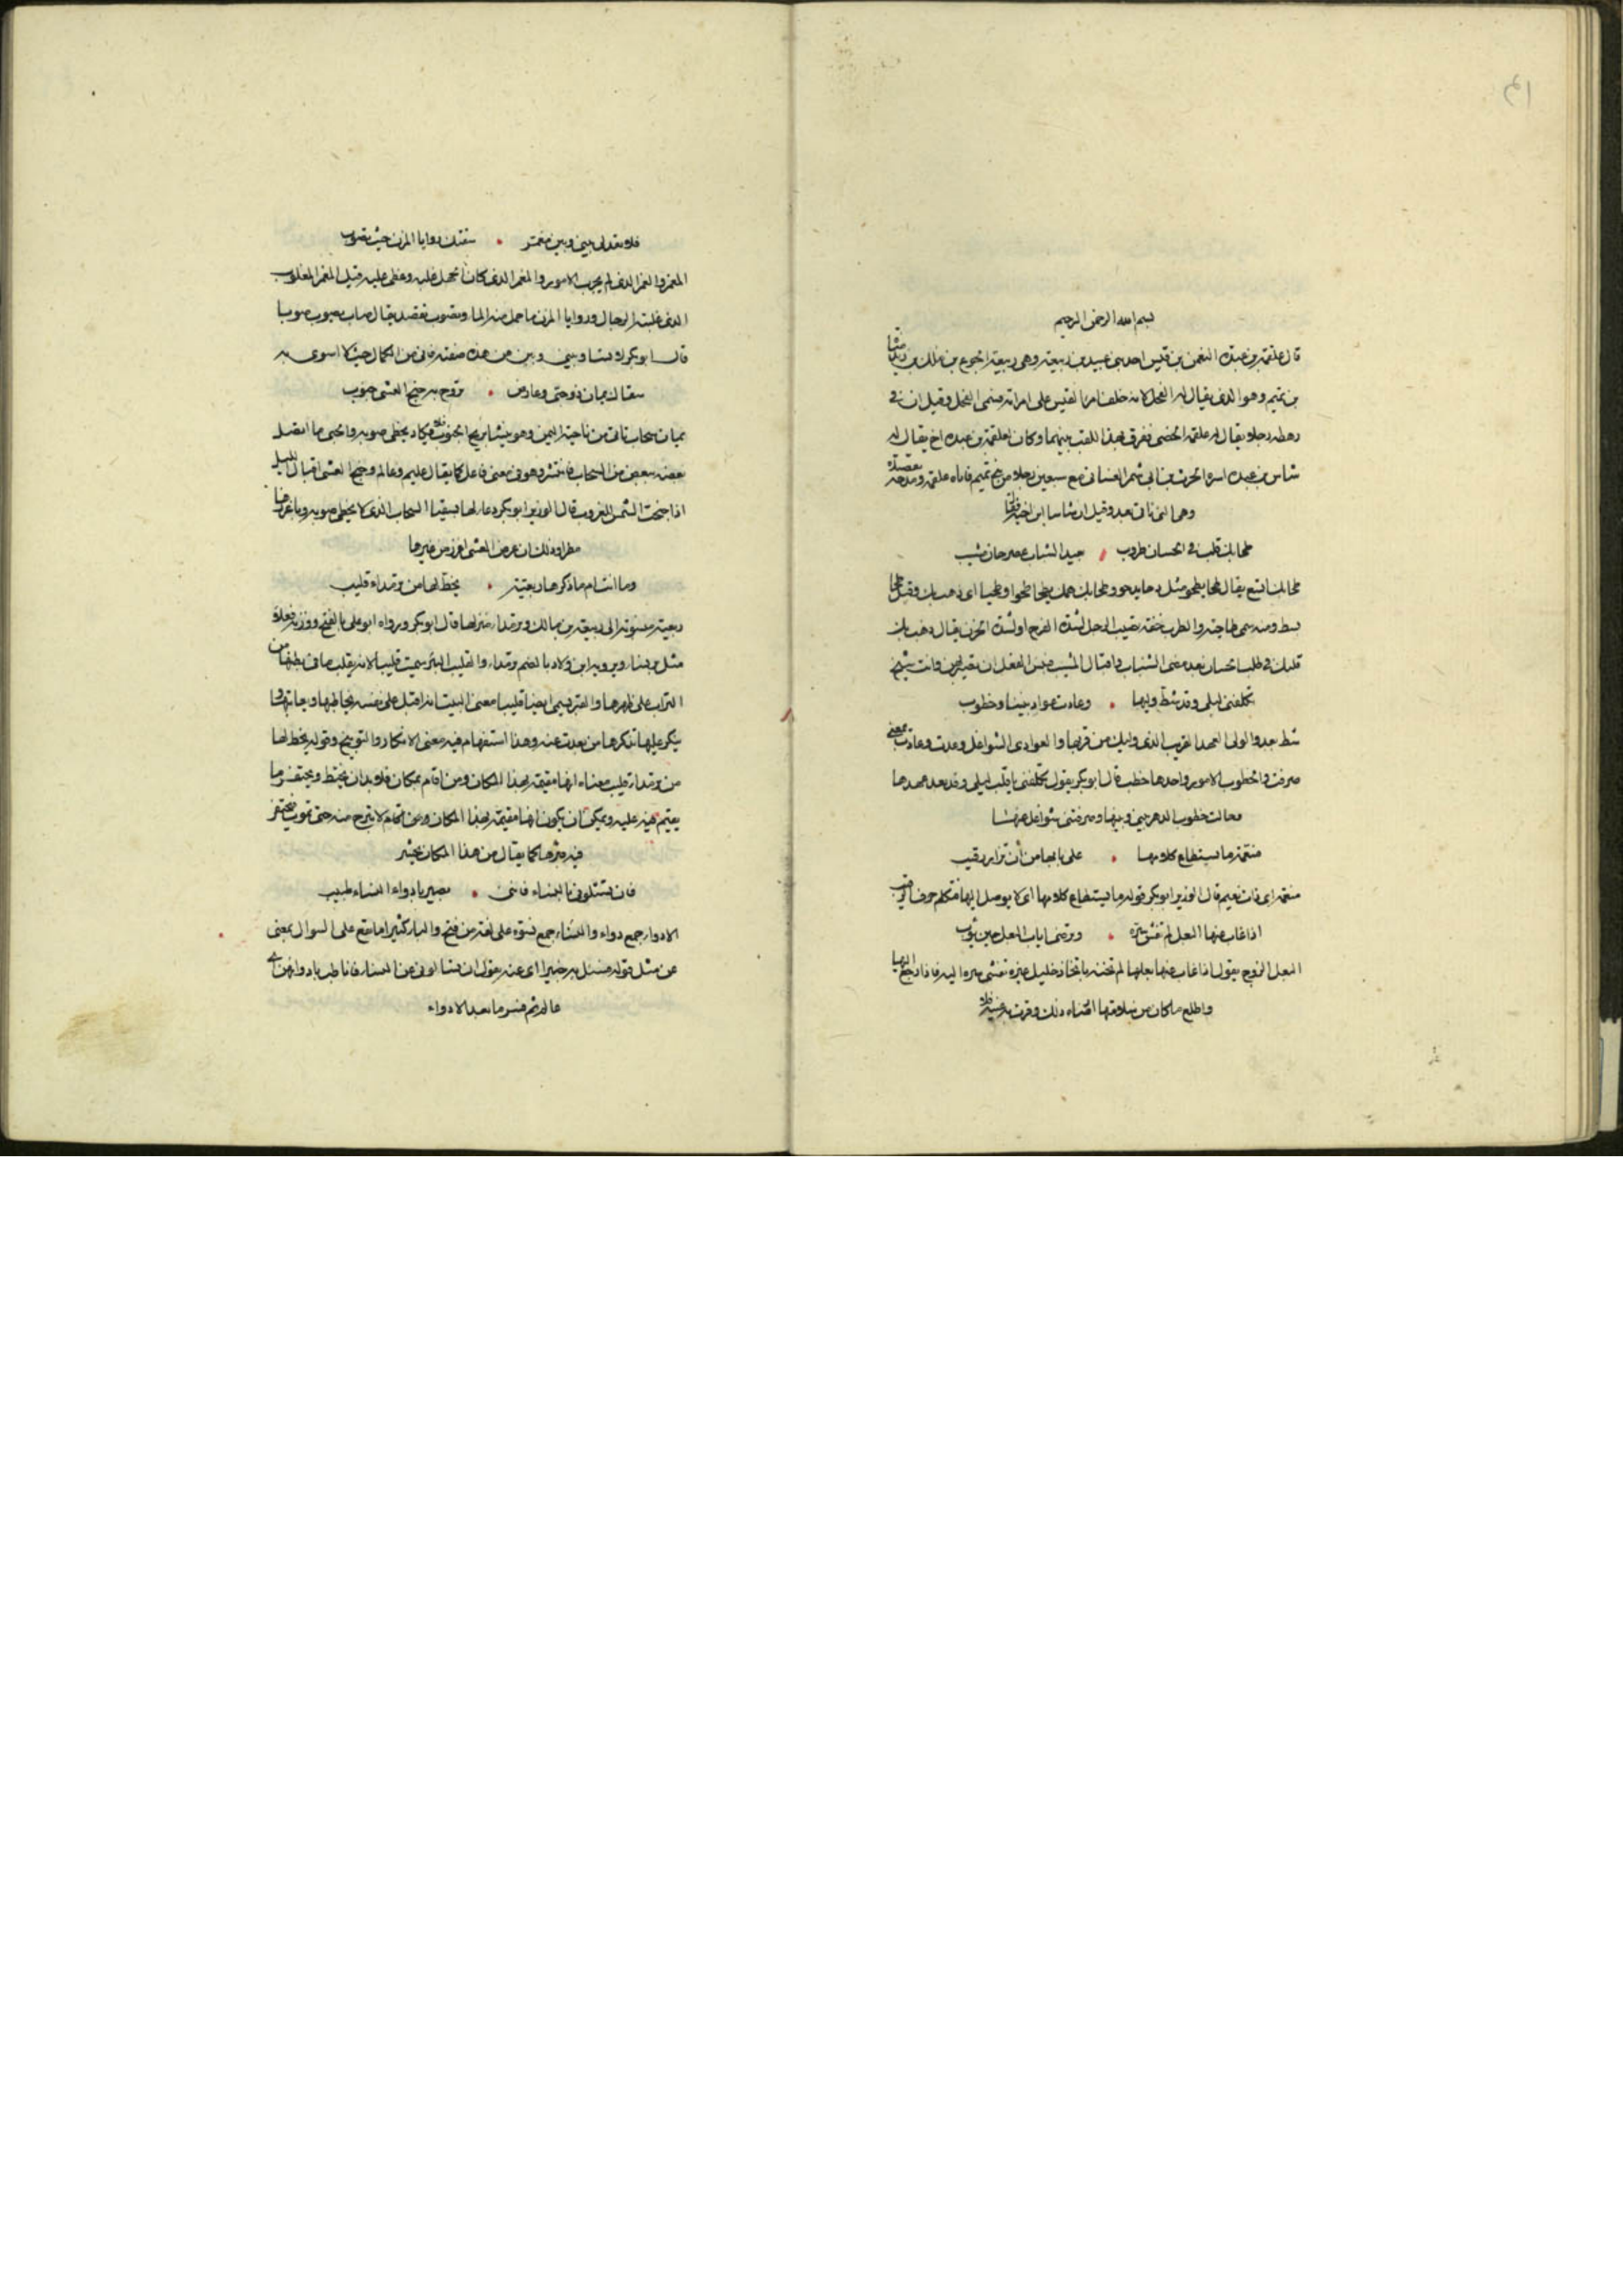 بسم الله الرحمن الرحيم
قال علقمة بن عبدة النعمن بن قيس احد بنى عبيد بن ربيعة وهى ربيعة الجوع بن ملك بن زيد مناة
بن تميم وهو الذى يقال له الفحل لانه خلف امرا القيس على امراته فسمى الفحل وقيل ان فى
رهطه رجلا يقال له علقمة الخصى ففرق بهذا اللقب بينهما وكان لعلقمة بن عبدة اخ يقال له
شاس بن عبدة اسره الحرث بن ابى شمر الغسانى مع سبعين رجلا من تميم فاتاه علقمة ومدحه بقصيدة
وهى التى تاتى بعد وقيل ان شاسا ابن اخيه
طحا بك قلب فى الحسان طروب بعيد الشباب عصر حان مشيب
طحا بك اتسع يقال طحا يطحو مثل دحا يدحو وطحا بك همك يطحا طحوا وطحيا اى ذهب بك وقيل طحا
بسط ومنه سمى طاحية والطرب خفة تصيب الرجل لشدة الفرح او لشدة الحزن يقال ذهب بك
قلبك فى طلب الحسان بعد مضى الشباب واقبال المشيب
تكلفنى ليلى وقد شط وليها وعادت عواد بيننا وخطوب
شط بعد والولى العهد القريب الذى وليك من قربها والعوادى الشواغل وعدت وعادت بمعنى
صرفت والخطوب الامور واحدها خطب قال ابو بكر يقول تكلفنى يا قلب ليلى وقد بعد عهدها
وحالت خطوب الدهر بينى وبينها وصرفتنى شواغل عنها
منعمة ما يستطاع كلامها على بابها من أن تزار رقيب
منعمة اى ذات نعيم قال الوزير ابو بكر قوله ما يستطاع كلامها اى لا يوصل اليها فتكلم خوف الرقيب
اذا غاب عنها البعل لم تفش سره وترضى اياب البعل حين يؤب
البعل الزوج يقول اذا غاب عنها بعلها لم تخنه باتخاذ خليل غيره تفشى سره اليه فاذا رجع اليها
واطلع ما كان من سلامتها ارضاه ذلك وقرت به عينه
فلا تعدلى بينى وبين مغمر سقتك روايا المزن حيث تصوب
المغمر والغمر الذى لم يجرب الامور والمغمر الذى كان الجهل غلبه وغطى عليه وقيل المغمر المغلوب
الذى غلبته الرجال وروايا المزن ما حمل منه الماء وتصوب تقصد يقال صاب يصوب صوبا
قال ابو بكر لا تساو بينى وبين من هذه صفته فانى من الكمال حيث لا اسوى به
سقاك يمان ذو حبى وعارض تروح به جنح العشى جنوب
يمان سحاب تاتى من ناحية اليمن وهو ينشا بريح الجنوب فلا يكاد يخطى صوبه والحبى ما اتصل
بعضه ببعض من السحاب فانتشر وهو فى معنى فاعل كما يقال عليم وعالم وجنح العشى اقبال الليل
اذا جنحت الشمس للغروب قال الوزير ابو بكر دعا لها بسقيا السحاب الذى لا يخطى صوبه
مطرا وذلك ان عرض العشى اغزر من غيرها
وما انت ام ما ذكرها ربعية يخط لها من ثرمداء قليب
ربعية منسوبة الى ربيعة بن مالك وثرمداء منزلها قال ابو بكر ورواه ابو على بالفتح ووزنه فعللاء
مثل ويرويه ابن ولاد بالضم ثرمداء والقليب البئر سميت قليبا لانه يقلب ما فى بطنها من
التراب على ظهرها والقبر يسمى ايضا قليبا معنى البيت انه اقبل على نفسه يخاطبها ويعاتبها
ينكر عليها تذكرها من بعدت عنه وهذا استفهام فيه معنى الانكار والتوبيخ وقوله يخط لها
من ثرمداء قليب معناه انها مقيمة بهذا المكان ومن اقام بمكان فلا بد ان يختط ويحتفر ما
يقيم فيه عليه ويمكن ان يكون انها مقيمة بهذا المكان ومن اقام لا تبرح منه حتى تموت فيحتفر
فيه قبرها كما يقال من هذا المكان يحشر
فان تسئلونى بالنساء فاننى بصير بادواء النساء طبيب
الادواء جمع داء والنساء جمع نسوة على لغة من فتح والباء كثيرا ما تقع على السوال بمعنى
عن مثل قوله فسئل به خبيرا اى عنه يقول ان تسالونى عن النساء فانا طب بادوائهن
عالم ثم فسر ما بعد الادواء